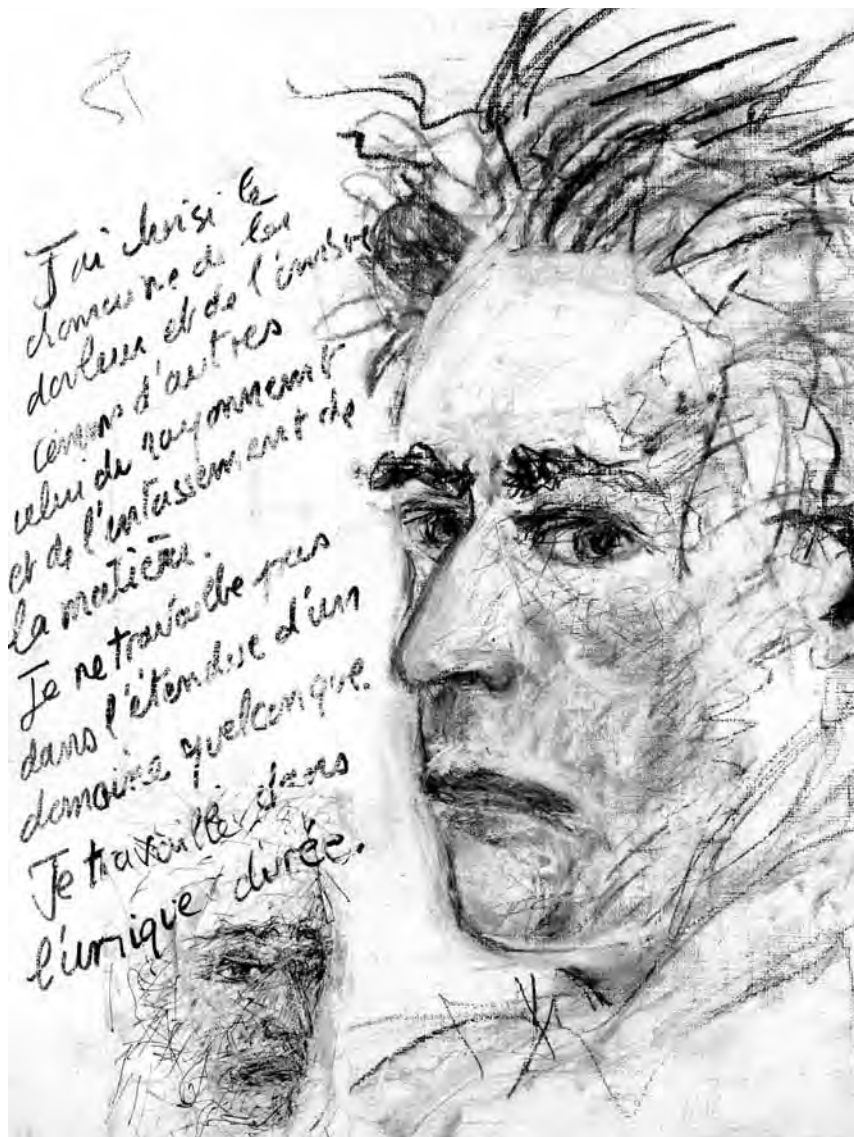 J'ai choisi le
domaine de la
douleur et de l'ombre
comme d'autres
celui du rayonnement
et de l'entassement de
la matière.
Je ne travaille pas
dans l'étendue d'un
domaine quelconque.
Je travaille dans
l'unique durée.